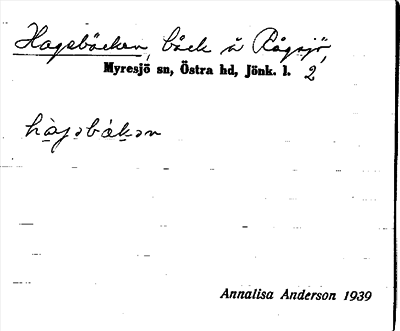 Hagabäcken, bäck å Rågsjö,
Myresjö sn, Östra hd, Jönk. l. 2
hàgabàkan
Annalisa Anderson 1939